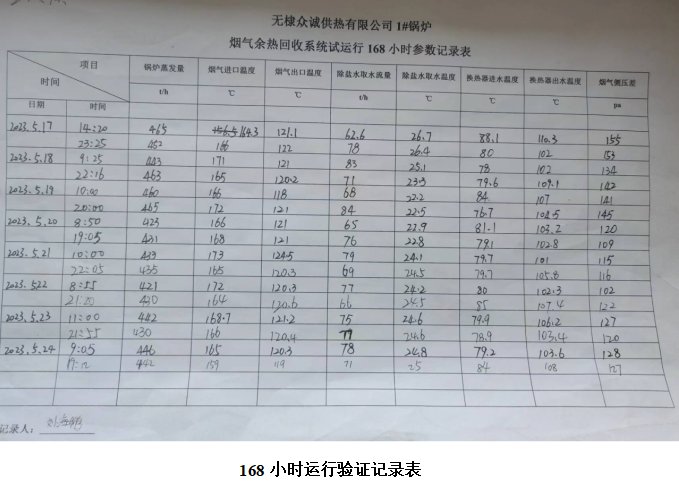 无棣众诚供热有限公司 1#锅炉
烟气余热回收系统试运行 168 小时参数记录表
项目 锅炉蒸发量 烟气进口温度 烟气出口温度 除盐水取水流量 除盐水取水温度 换热器进水温度 换热器出水温度 烟气侧压差
时间 t/h ℃ ℃ t/h ℃ ℃ ℃ pa
日期 时间
2023.5.17 14:20 465 164.3 121.1 62.6 26.7 88.1 110.3 155
23:25 452 166 122 78 26.4 80 102 153
2023.5.18 9:25 443 171 121 83 25.1 78 102 134
22:16 463 165 120.2 71 23.3 79.6 109.1 142
2023.5.19 10:00 460 166 118 68 22.2 84 107 141
20:00 465 172 121 84 22.5 76.7 101.5 145
2023.5.20 8:50 423 166 121 65 22.9 81.1 103.2 120
19:05 421 168 121 76 22.8 79.1 102.8 109
2023.5.21 10:00 433 173 124.5 79 24.1 79.7 101 115
22:05 435 165 120.3 69 24.5 79.7 105.8 116
2023.5.22 8:55 421 172 120.3 77 24.2 80 102.3 102
21:20 430 164 120.6 66 24.5 85 107.4 122
2023.5.23 11:00 442 168.7 121.2 75 24.6 79.9 106.2 127
21:55 430 166 120.4 77 24.6 78.9 103.4 120
2023.5.24 9:05 446 165 120.3 78 24.8 79.2 103.6 128
19:12 442 159 119 71 25 84 108 127
记录人:
168 小时运行验证记录表